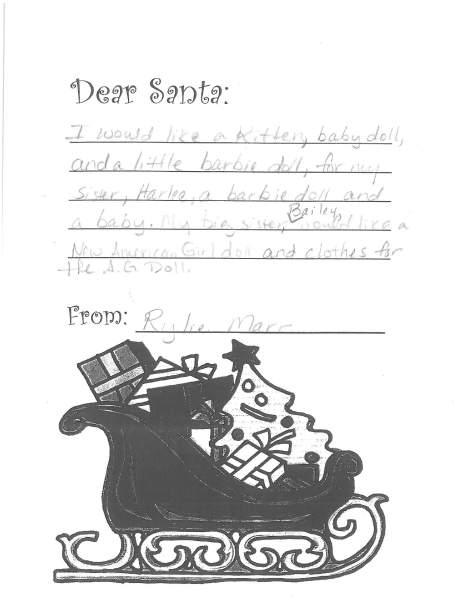 Dear Santa:
I would like a Kitten, baby doll,
and a little barbie doll, for my
sister, Harlea, a barbie doll and
a baby. My big sister, Bailey, would like a
New American Girl doll and clothes for
the A.G. Doll.
From: Rylie Marr